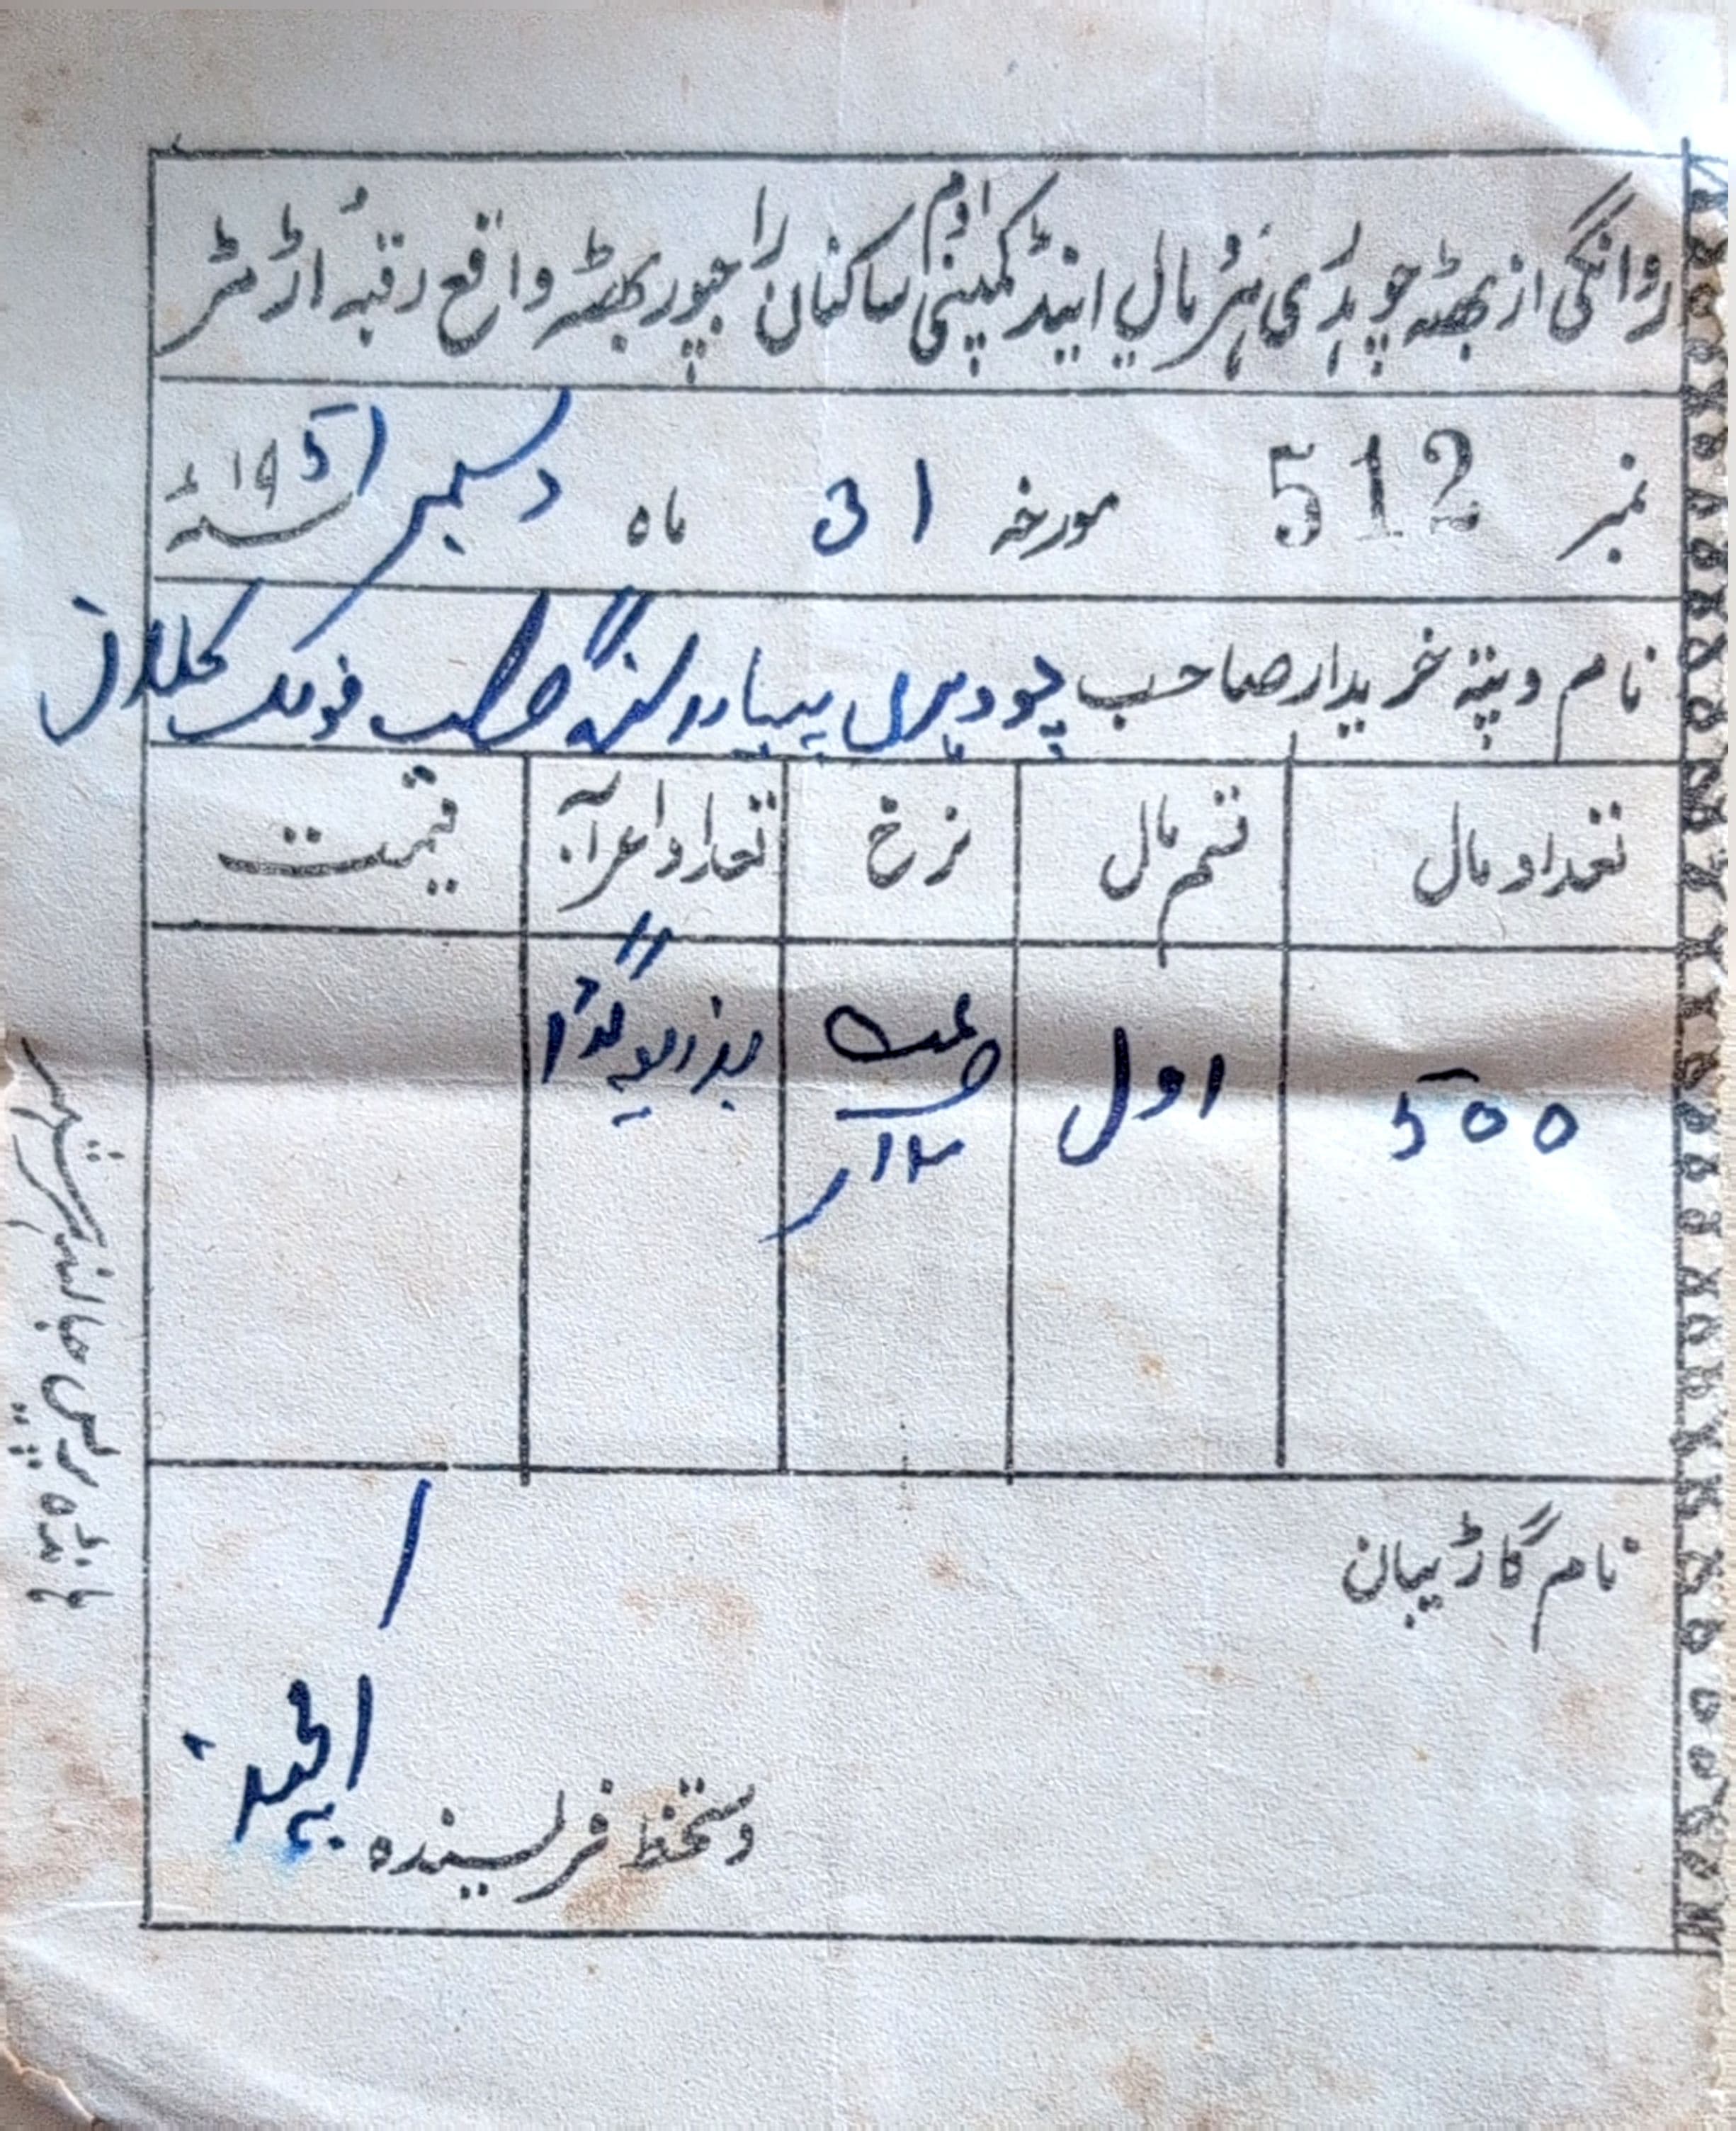 روانگی از بھٹہ چوہدری ہنرمال اینڈ کمپنی ساکنان راجپور بھٹہ واقع رقبہ اڑمڑ
نمبر 512 مورخہ 31 ماہ دسمبر 1951ء
نام و پتہ خریدار صاحب چوہدری پیارا سنگھ صاحب کلاں
تعداد مال قسم مال نرخ تعداد قیمت
500 اول بذریعہ گڈا
نام گاڑیبان
دستخط فریسندہ
پانڈہ پریس جالندھر شہر